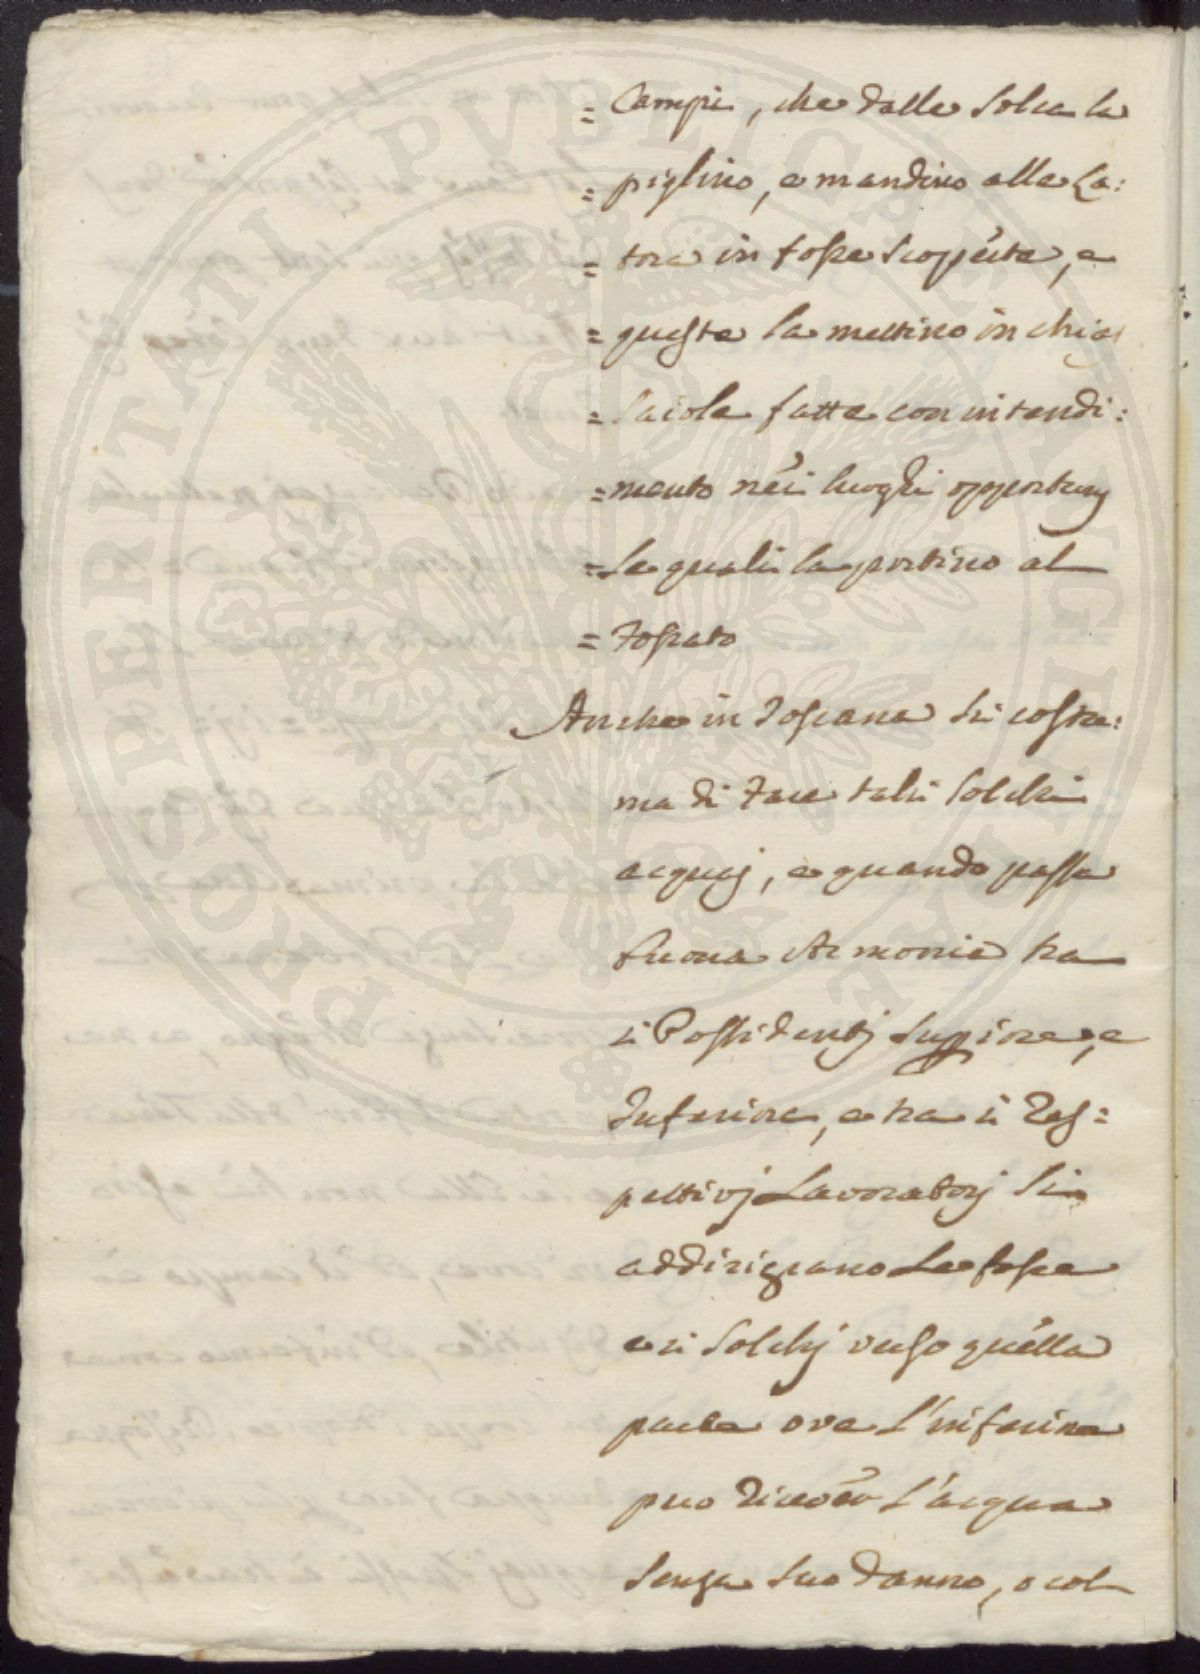 = Campi, che dalle Solca la
= piglino, e mandino alle La:
= tora in fosse scoperte, e
= queste la mettino in chia
= saiole fatte con intendi:
= mento néi luoghi opportunj
= le quali la portino al
= Fossato
Anche in Toscana si costu:
ma di fare tali Solchi
acquaj, e quando passa
buona Armonia tra
i Possidentj Superiore, e
Inferiore, e tra i Res=
pettivj Lavoratorj si
addirizzano Le fosse
e i Solchj verso quélla
parte ove l'inferiore
puo Ricever l'acqua
senza suo danno, o col
PROSPERITATI PVBLICAE AVGENDAE